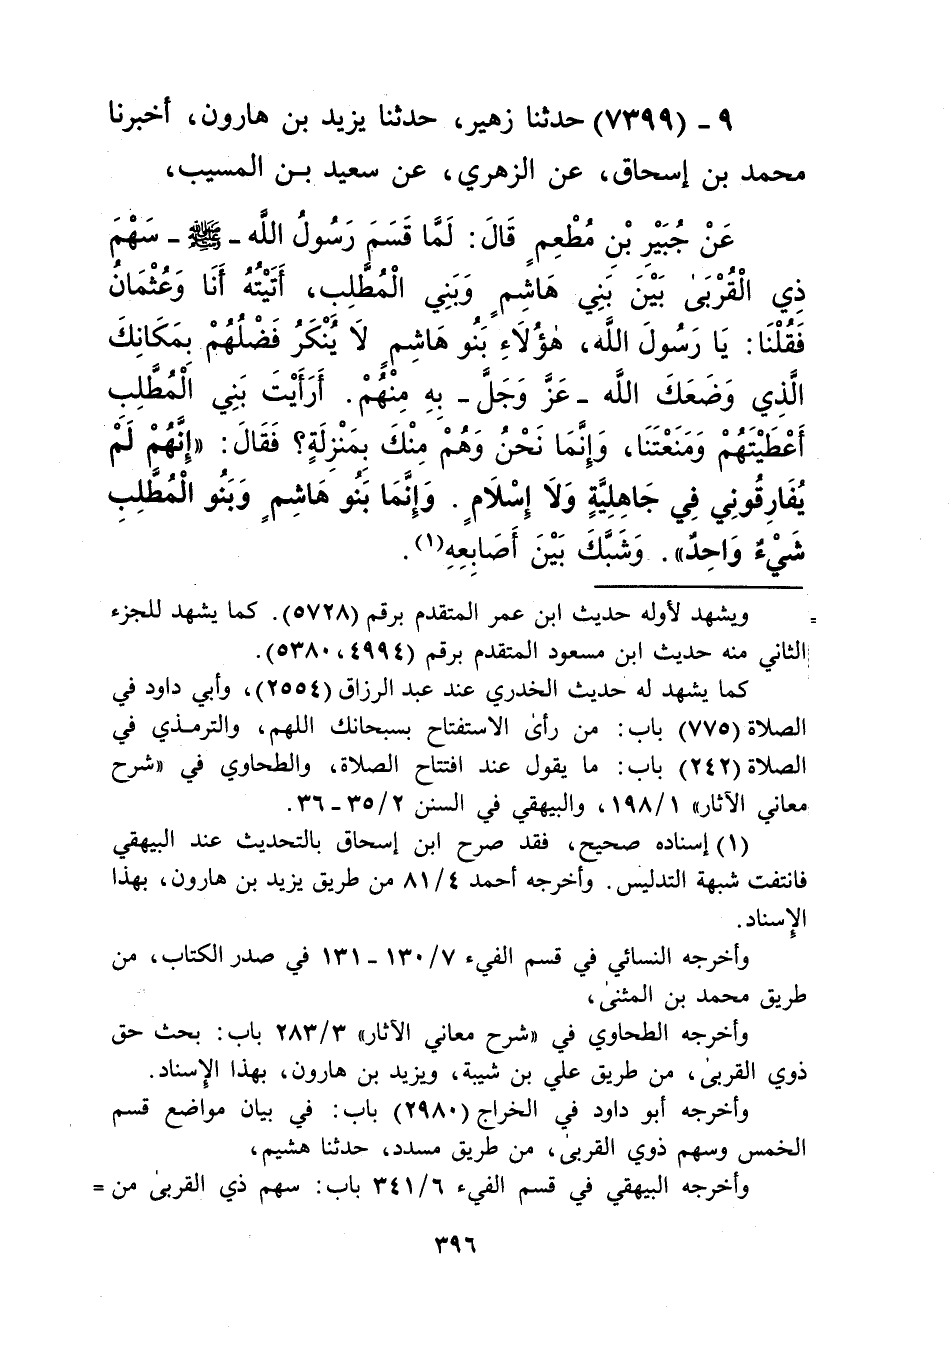 ٩ - (٧٣٩٩) حدثنا زهير، حدثنا يزيد بن هارون، أخبرنا
محمد بن إسحاق، عن الزهري، عن سعيد بن المسيب،
عَنْ جُبَيْرِ بْنِ مُطْعِمٍ قَالَ: لَمَّا قَسَمَ رَسُولُ اللَّه - ﷺ - سَهْمَ
ذِي الْقُرْبَىٰ بَيْنَ بَنِي هَاشِمٍ وَبَنِي الْمُطَّلِبِ، أَتَيْتُهُ أَنَا وَعُثْمَانُ
فَقُلْنَا: يَا رَسُولَ اللَّه، هٰؤُلَاءِ بَنُو هَاشِمٍ لَا يُنْكَرُ فَضْلُهُمْ بِمَكَانِكَ
الَّذِي وَضَعَكَ اللَّه - عَزَّ وَجَلَّ - بِهِ مِنْهُمْ. أَرَأَيْتَ بَنِي الْمُطَّلِبِ
أَعْطَيْتَهُمْ وَمَنَعْتَنَا، وَإِنَّمَا نَحْنُ وَهُمْ مِنْكَ بِمَنْزِلَةٍ؟ فَقَالَ: «إِنَّهُمْ لَمْ
يُفَارِقُونِي فِي جَاهِلِيَّةٍ وَلَا إِسْلَامٍ. وَإِنَّمَا بَنُو هَاشِمٍ وَبَنُو الْمُطَّلِبِ
شَيْءٌ وَاحِدٌ». وَشَبَّكَ بَيْنَ أَصَابِعِهِ(١).
= ويشهد لأوله حديث ابن عمر المتقدم برقم (٥٧٢٨). كما يشهد للجزء
الثاني منه حديث ابن مسعود المتقدم برقم (٤٩٩٤، ٥٣٨٠).
كما يشهد له حديث الخدري عند عبد الرزاق (٢٥٥٤)، وأبي داود في
الصلاة (٧٧٥) باب: من رأىٰ الاستفتاح بسبحانك اللهم، والترمذي في
الصلاة (٢٤٢) باب: ما يقول عند افتتاح الصلاة، والطحاوي في «شرح
معاني الآثار» ١٩٨/١، والبيهقي في السنن ٣٥/٢ - ٣٦.
(١) إسناده صحيح، فقد صرح ابن إسحاق بالتحديث عند البيهقي
فانتفت شبهة التدليس. وأخرجه أحمد ٨١/٤ من طريق يزيد بن هارون، بهذا
الإسناد.
وأخرجه النسائي في قسم الفيء ١٣٠/٧ - ١٣١ في صدر الكتاب، من
طريق محمد بن المثنىٰ،
وأخرجه الطحاوي في «شرح معاني الآثار» ٢٨٣/٣ باب: بحث حق
ذوي القربىٰ، من طريق علي بن شيبة، ويزيد بن هارون، بهذا الإسناد.
وأخرجه أبو داود في الخراج (٢٩٨٠) باب: في بيان مواضع قسم
الخمس وسهم ذوي القربىٰ، من طريق مسدد، حدثنا هشيم،
وأخرجه البيهقي في قسم الفيء ٣٤١/٦ باب: سهم ذي القربىٰ من =
٣٩٦